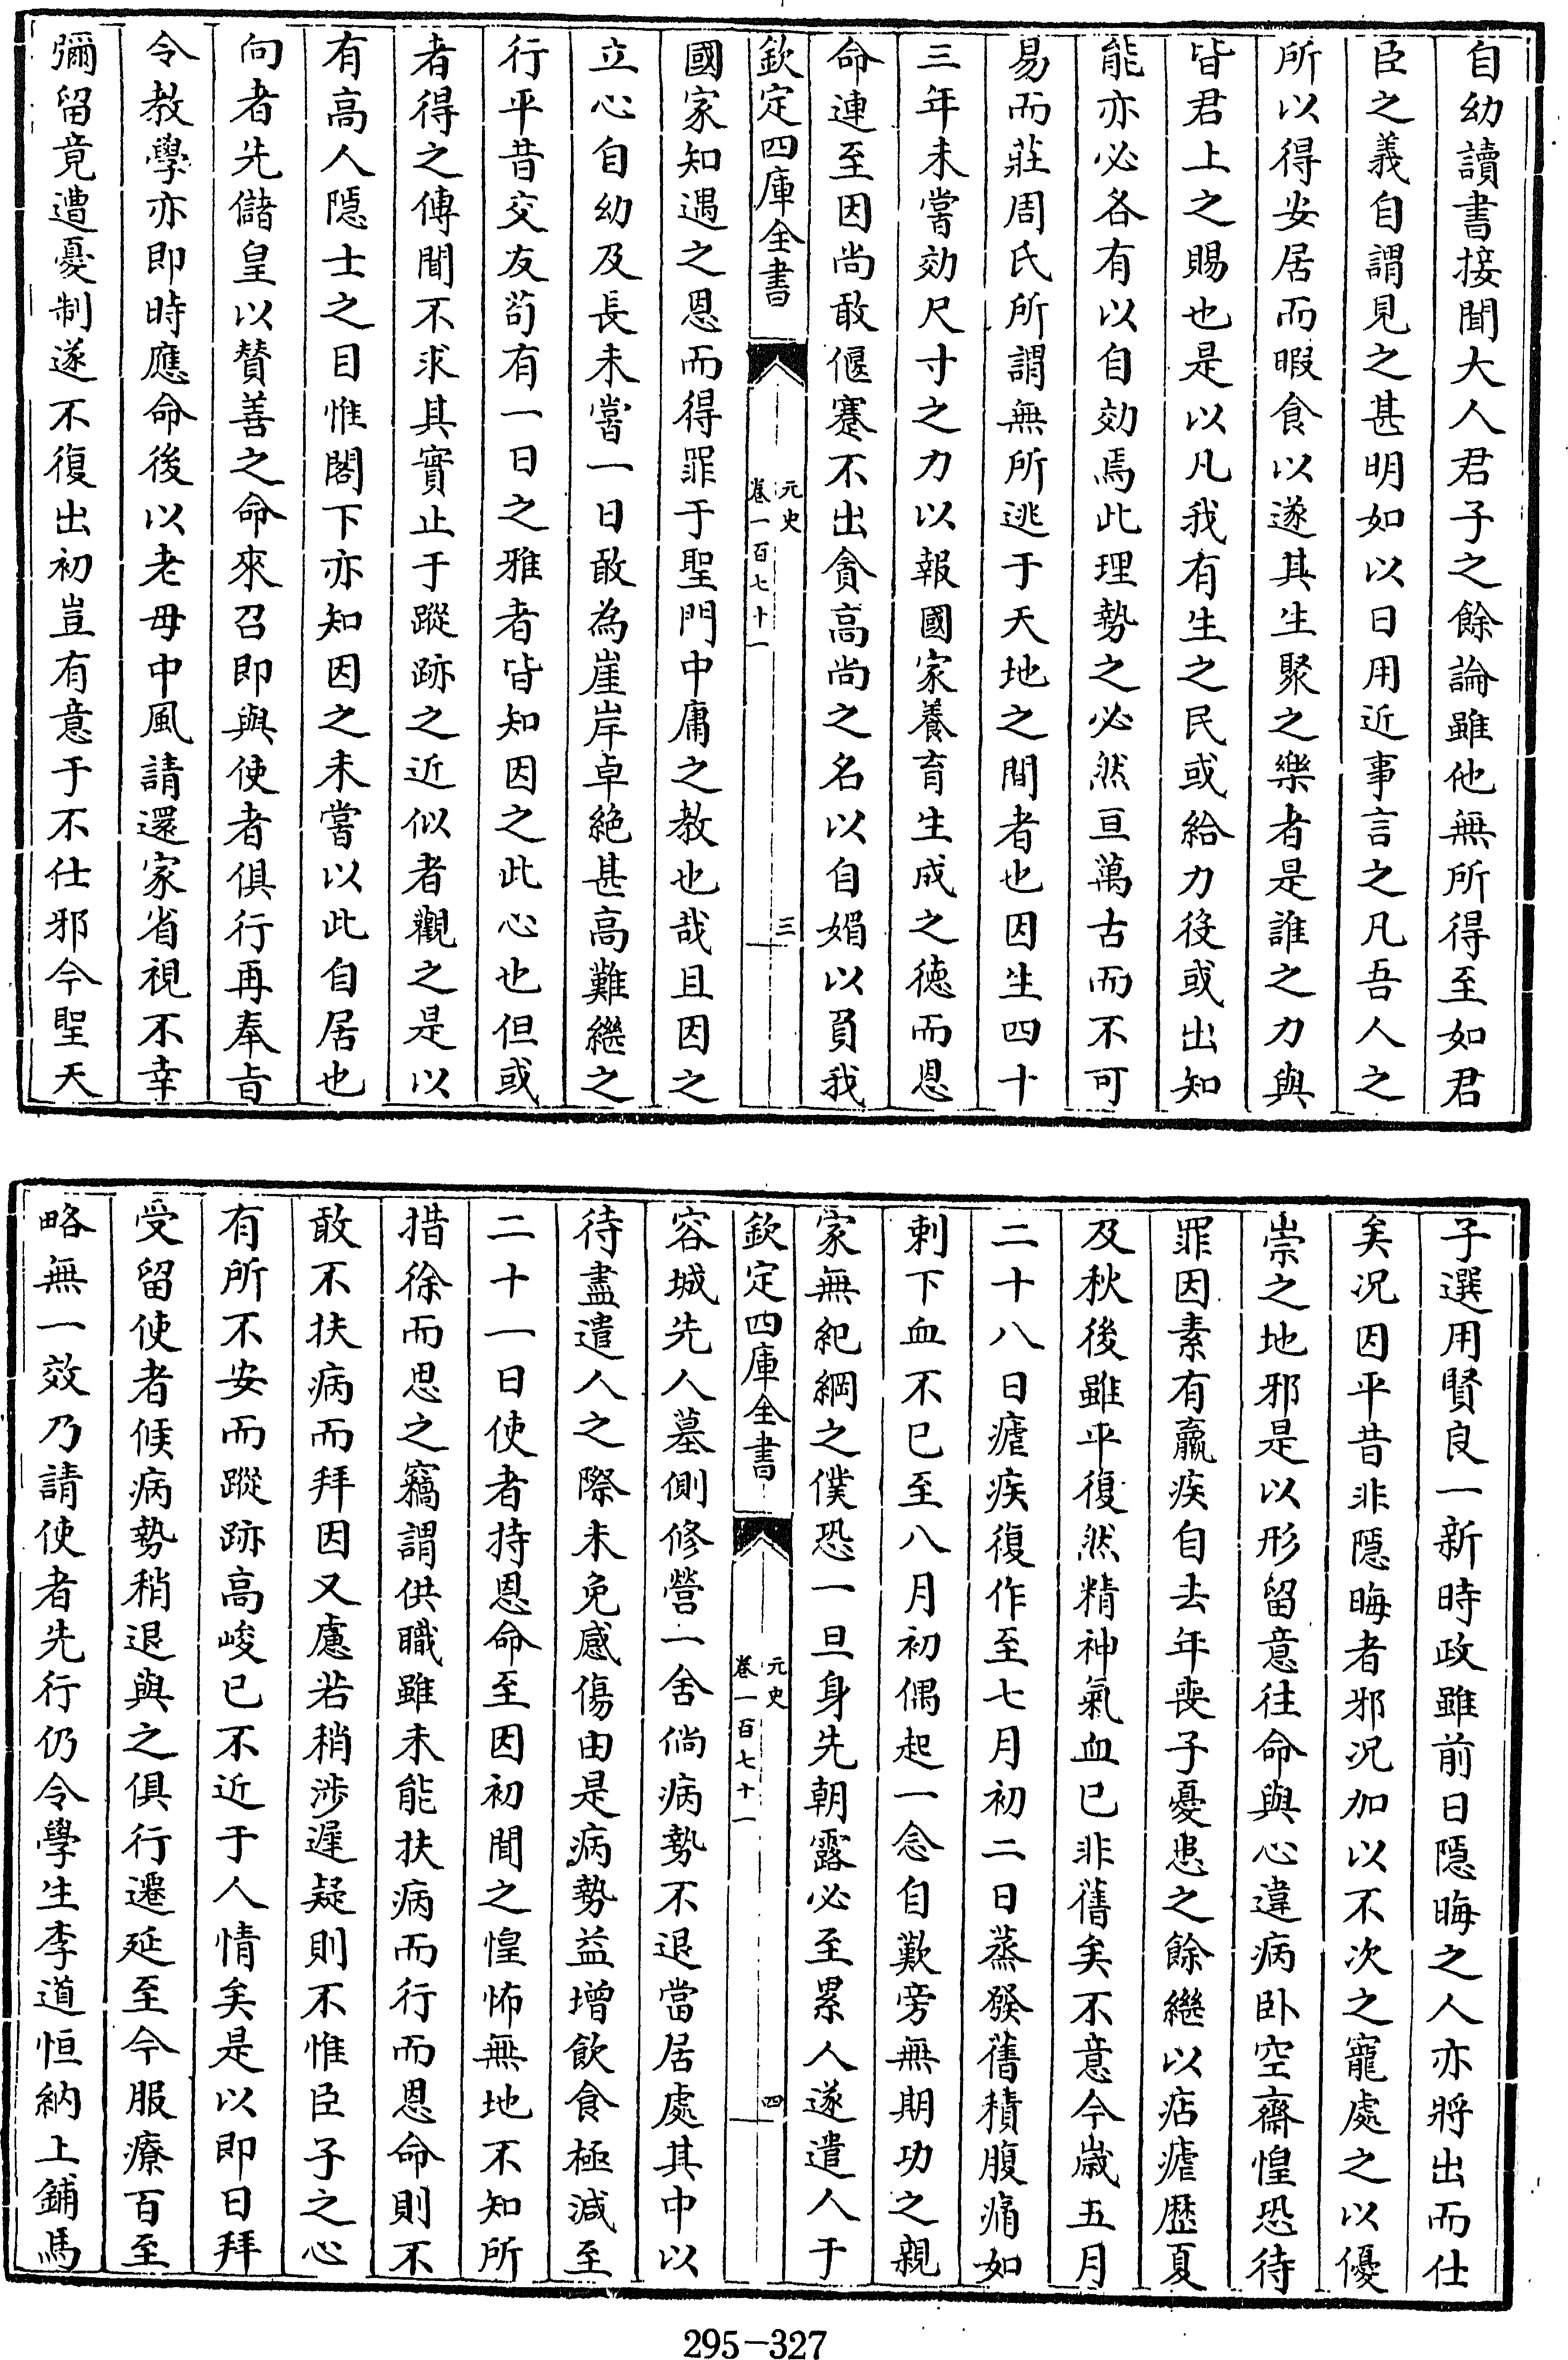 自幼讀書接聞大人君子之餘論雖他無所得至如君
臣之義自謂見之甚明如以日用近事言之凡吾人之
所以得安居而暇食以遂其生聚之樂者是誰之力與
皆君上之賜也是以凡我有生之民或給力役或出知
能亦必各有以自効焉此理勢之必然亘萬古而不可
易而莊周氏所謂無所逃于天地之間者也因生四十
三年未嘗効尺寸之力以報國家養育生成之德而恩
命連至因尚敢偃蹇不出貪高尚之名以自媚以負我
欽定四庫全書
元史
卷一百七十一
三
國家知遇之恩而得罪于聖門中庸之教也哉且因之
立心自幼及長未嘗一日敢為崖岸卓絶甚高難繼之
行平昔交友苟有一日之雅者皆知因之此心也但或
者得之傳聞不求其實止于蹤跡之近似者觀之是以
有高人隱士之目惟閣下亦知因之未嘗以此自居也
向者先儲皇以賛善之命來召即與使者俱行再奉㫖
令教學亦即時應命後以老母中風請還家省視不幸
彌留竟遭憂制遂不復出初豈有意于不仕邪今聖天
子選用賢良一新時政雖前日隱晦之人亦將出而仕
矣況因平昔非隱晦者邪況加以不次之寵處之以優
崇之地邪是以形留意往命與心違病卧空齋惶恐待
罪因素有羸疾自去年喪子憂患之餘繼以痁瘧歴夏
及秋後雖平復然精神氣血已非舊矣不意今歳五月
二十八日瘧疾復作至七月初二日蒸發舊積腹痛如
刺下血不已至八月初偶起一念自歎旁無期功之親
家無紀綱之僕恐一旦身先朝露必至累人遂遣人于
欽定四庫全書
元史
卷一百七十一
四
容城先人墓側修營一舍倘病勢不退當居處其中以
待盡遣人之際未免感傷由是病勢益增飲食極減至
二十一日使者持恩命至因初聞之惶怖無地不知所
措徐而思之竊謂供職雖未能扶病而行而恩命則不
敢不扶病而拜因又慮若稍涉遲疑則不惟臣子之心
有所不安而蹤跡高峻已不近于人情矣是以即日拜
受留使者候病勢稍退與之俱行遷延至今服療百至
略無一效乃請使者先行仍令學生李道恒納上鋪馬
295-327